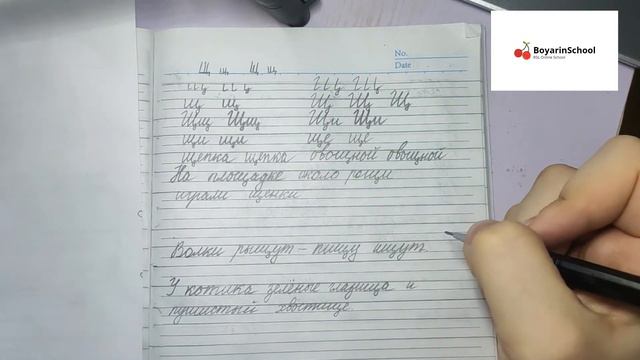 BoyarinSchool
RSL Online School
No.
Date
Щ щ Щ щ
щ щ Щ Щ Щ
Щщ Щщ Щи Щи
щи щи ще ще
щепка щепка овощной овощной
На площадке около рощи
играли щенки
Волки рыщут – пищу ищут
У котика зелёные глазища и
пушистый хвостище.